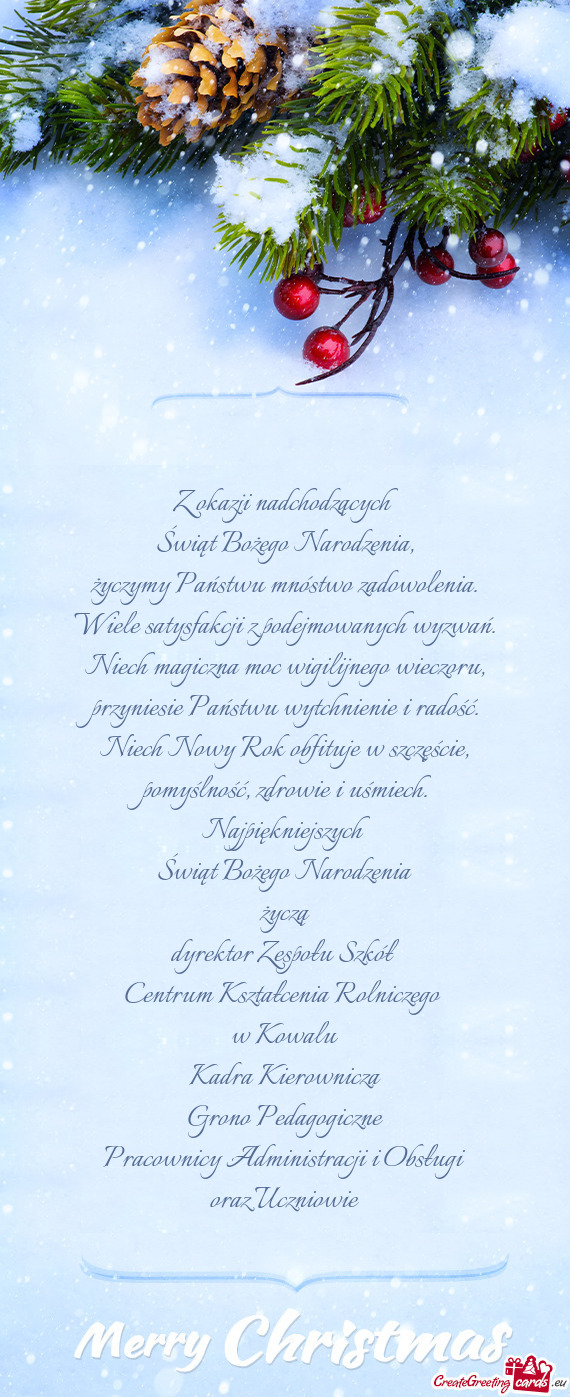 Z okazji nadchodzących
Świąt Bożego Narodzenia,
życzymy Państwu mnóstwo zadowolenia.
Wiele satysfakcji z podejmowanych wyzwań.
Niech magiczna moc wigilijnego wieczoru,
przyniesie Państwu wytchnienie i radość.
Niech Nowy Rok obfituje w szczęście,
pomyślność, zdrowie i uśmiech.
Najpiękniejszych
Świąt Bożego Narodzenia
życzą
dyrektor Zespołu Szkół
Centrum Kształcenia Rolniczego
w Kowalu
Kadra Kierownicza
Grono Pedagogiczne
Pracownicy Administracji i Obsługi
oraz Uczniowie
Merry Christmas
CreateGreetingcards.eu